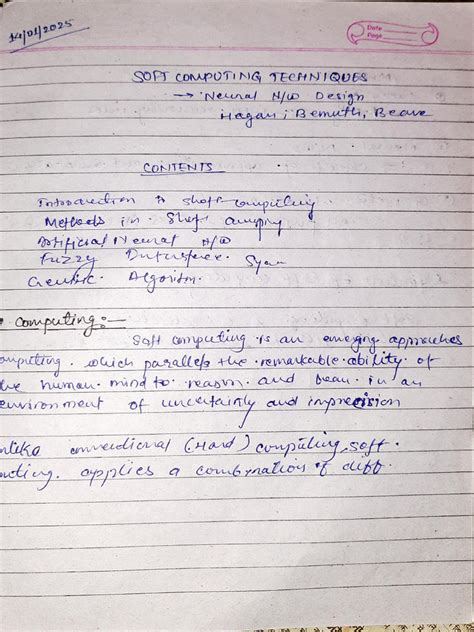 14/01/2025
Date
Page
SOFT COMPUTING TECHNIQUES
→ Neural N/W Design
Hagan, Bemuth, Beave
CONTENTS
Introduction to shoft computing
Methods in Shoft
Artificial Neural N/W
Fuzzy
Genetic Algorithm.
• Computing:-
Soft computing is an emerging approaches
omputing. which parallels the remarkable ability of
the human mind to reason and in an
environment of uncertainty and imprecision
nlike conventional (Hard) computing, soft
uting applies a combination of diff.